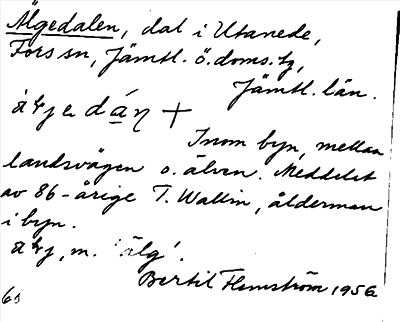 Älgedalen, dal i Utanede,
Fors sn, Jämtl. ö. doms. tg,
Jämtl. län.
+
Inom byn, mellan
landsvägen o. älven. Meddelat
av 86-årige T. Wallin, ålderman
i byn.
m. 'älg'.
Bertil Flemström 1956